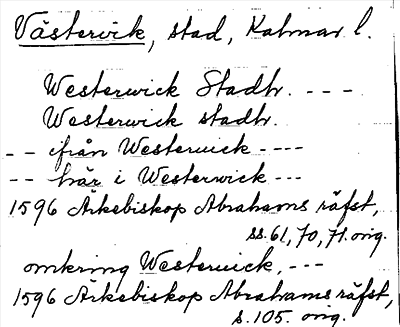 Västervik, stad, Kalmar l.
Westerwick Stadh. - - -
Westerwick stadh.
- - ifrån Westerwick - - - -
- - här i Westerwick - - -
1596 Ärkebiskop Abrahams räfst,
ss. 61, 70, 71. orig.
omkring Westerwick, - - -
1596 Ärkebiskop Abrahams räfst,
s. 105. orig.